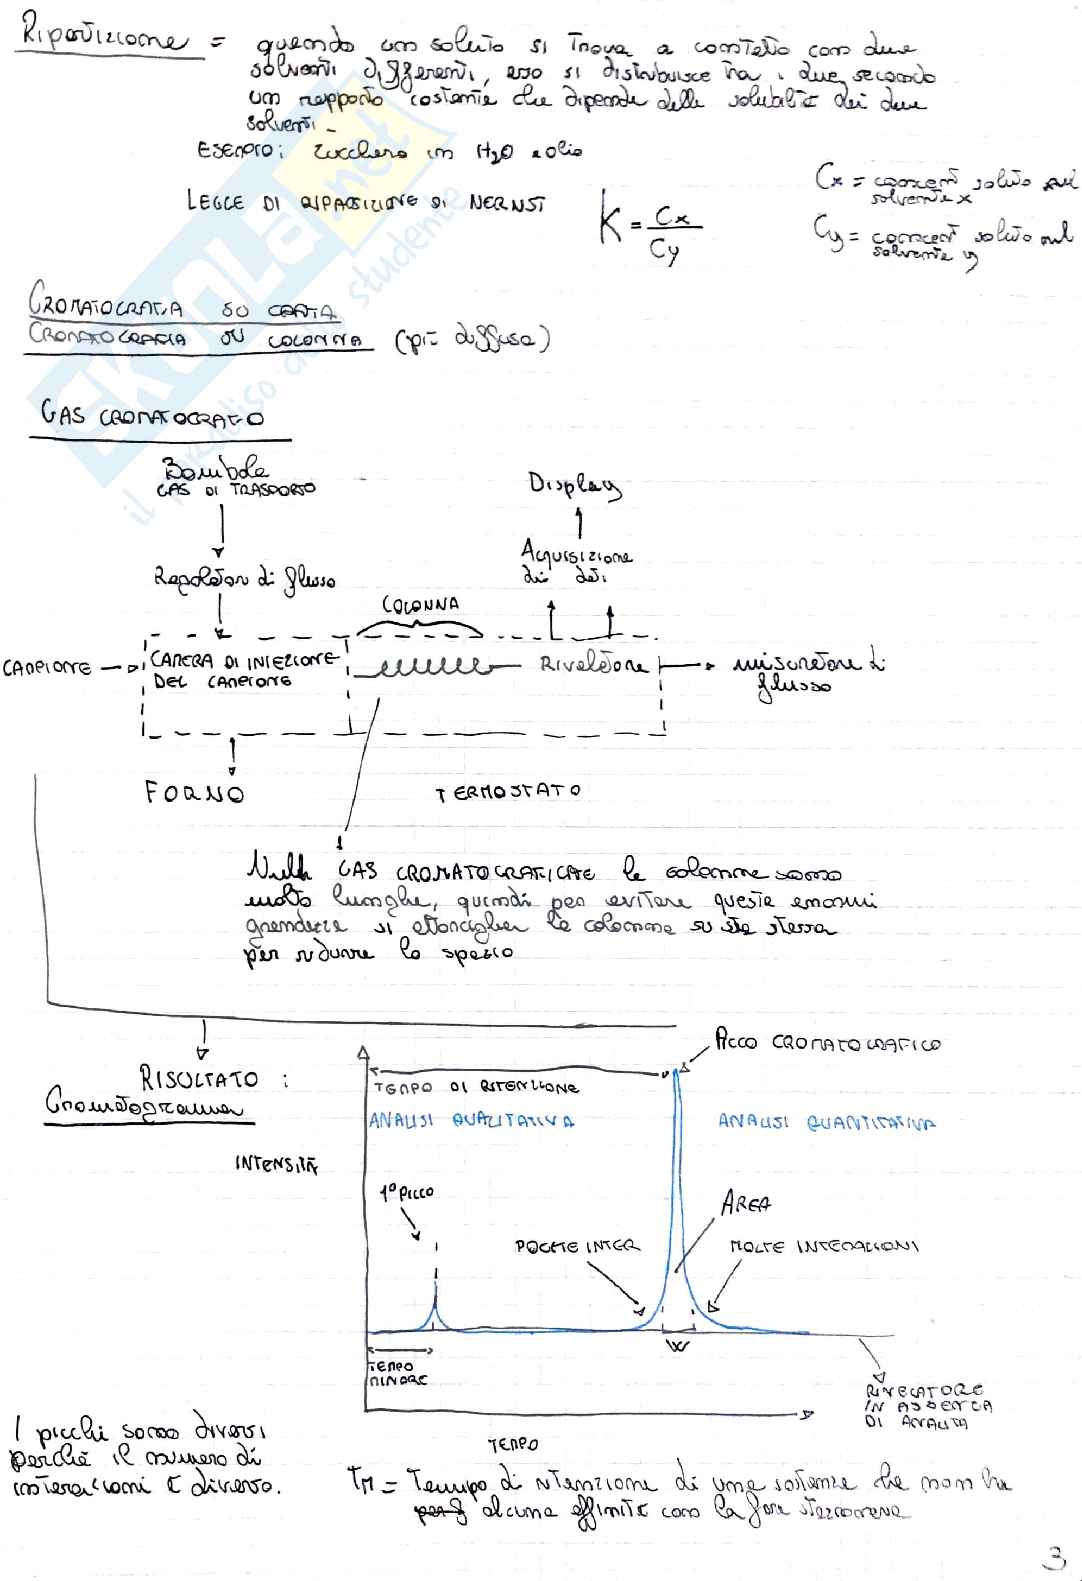 Ripartizione = quando un soluto si trova a contatto con due
solventi differenti, esso si distribuisce tra i due secondo
un rapporto costante che dipende delle solubilità dei due
solventi.
ESEMPIO: Zucchero in H2O e olio
LEGGE DI RIPARTIZIONE DI NERNST
K = Cx / Cy
Cx = concent soluto nel
solvente x
Cy = concent soluto nel
solvente y
CROMATOGRAFIA SU CARTA
CROMATOGRAFIA SU COLONNA (più diffusa)
GAS CROMATOGRAFO
Bombola
GAS DI TRASPORTO
Display
Regolatore di flusso
Acquisizione
dei dati
COLONNA
CAMPIONE
CAMERA DI INIEZIONE
DEL CAMPIONE
Rivelatore
misuratore di
flusso
FORNO
TERMOSTATO
Nella GAS CROMATOGRAFIA le colonne sono
molto lunghe, quindi per evitare queste enormi
grandezze si attorciglia la colonna su sé stessa
per ridurre lo spazio
RISULTATO:
Cromatogramma
PICCO CROMATOGRAFICO
TEMPO DI RITENZIONE
ANALISI QUALITATIVA
ANALISI QUANTITATIVA
INTENSITÀ
1° PICCO
AREA
POCHE INTER
MOLTE INTERAZIONI
W
TEMPO
MINORE
RIVELATORE
IN ASSENZA
DI ANALITA
TEMPO
I picchi sono diversi
perché il numero di
interazioni è diverso.
TM = Tempo di ritenzione di una sostanza che non ha
alcuna affinità con la fase stazionaria
3
SKUOLA.net
il paradiso dello studente